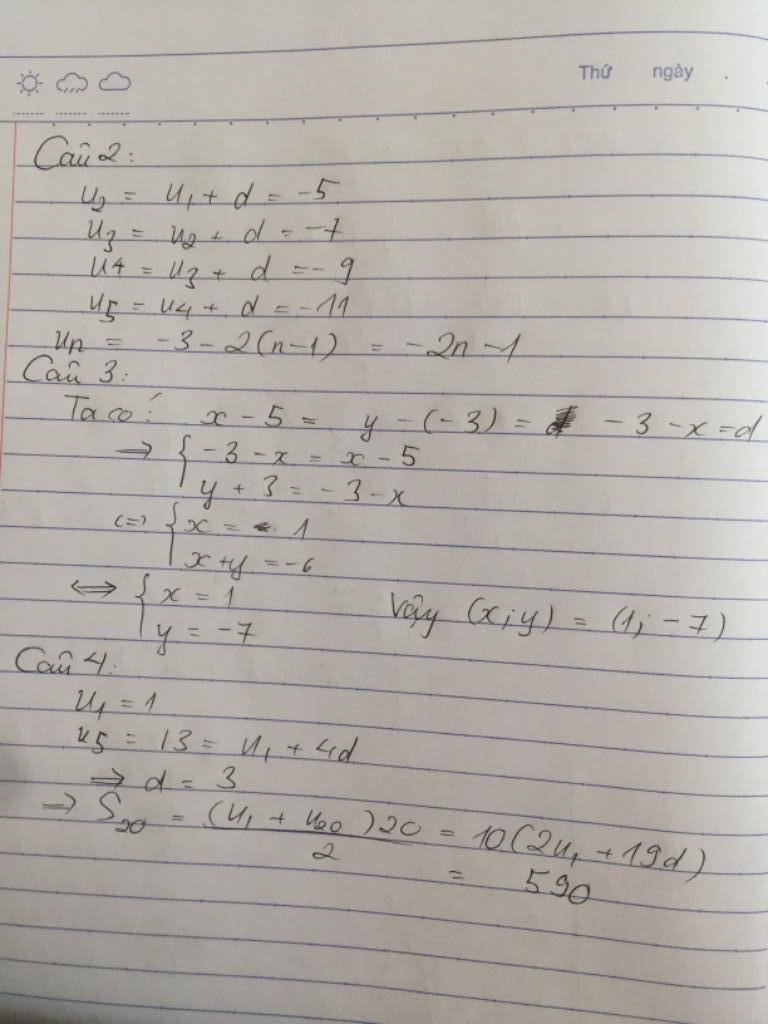 Thứ ngày .
Câu 2:
u₂ = u₁ + d = -5
u₃ = u₂ + d = -7
u4 = u₃ + d = -9
u₅ = u₄ + d = -11
un = -3 - 2(n-1) = -2n - 1
Câu 3:
Ta có: x - 5 = y - (-3) = -3 - x = d
⇒ { -3 - x = x - 5
y + 3 = -3 - x
⇔ { x = 1
x + y = -6
⇔ { x = 1
y = -7 Vậy (x; y) = (1; -7)
Câu 4:
u₁ = 1
u₅ = 13 = u₁ + 4d
⇒ d = 3
⇒ S₂₀ = (u₁ + u₂₀)20 / 2 = 10(2u₁ + 19d)
= 590